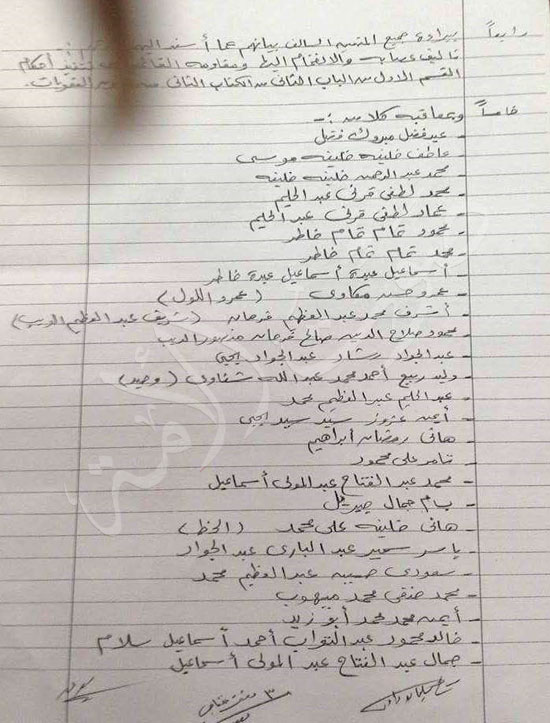 رابعاً ببراءة جميع المتهمين السالف بيانهم عما أسند إليهم
تأليف عصابة والانضمام إليها ومقاومة أحكام
القسم الاول من الباب الثانى من الكتاب الثانى العقوبات.
خامساً وبمعاقبة كلا من :-
- عيد فضل مبروك فضل
- عاطف خليفة خليفة موسى
- محمد عبد الرحمن خليفة خليفة
- محمد لطفى قرنى عبد الحليم
- عماد لطفى قرنى عبد الحليم
- محمود تمام تمام خاطر
- محمد تمام تمام خاطر
- أسماعيل عبدة أسماعيل عبدة خاطر
- عمرو حسن مكاوى (عمرو اللول)
- أشرف محمد عبد العظيم فرحان (شريف عبد العظيم الديب)
- محمود صلاح الدين صالح فرحان الديب
- عبد الجواد رشاد عبد الجواد يحيى
- وليد ربيع أحمد محمد عبد الله شفاوى (وحيد)
- عبد الحليم عبد العظيم محمد
- أيمن عزوز سيد سيد يحيى
- هانى رمضان أبراهيم
- تامر على محمود
- محمد عبد الفتاح عبد المولى أسماعيل
- بسام جمال جبريل
- هانى خليفة على محمد (الحظ)
- ياسر سمير عبد البارى عبد الجواد
- سعودى عبد العظيم محمد
- محمد حنفى محمد ميهوب
- أيمن محمد محمد أبو زيد
- خالد محمود عبد التواب أحمد أسماعيل سلام
- جمال عبد الفتاح عبد المولى أسماعيل